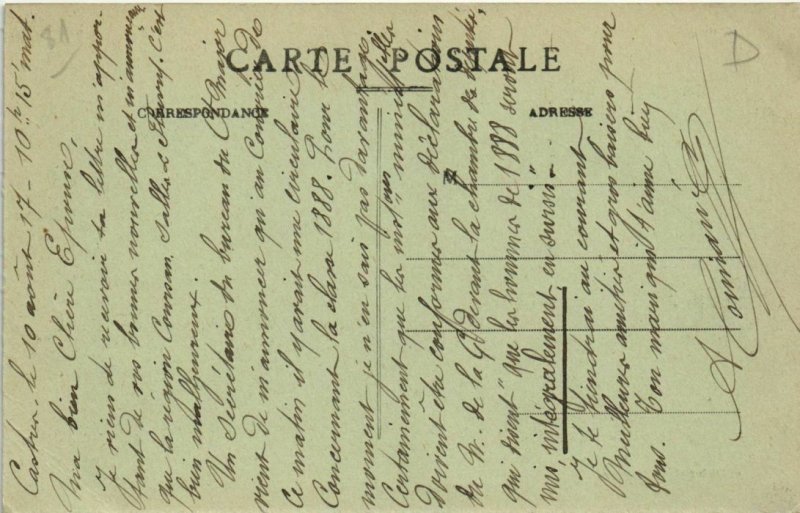 CARTE POSTALE
CORRESPONDANCE
ADRESSE
81
D
Castres, le 10 août 17 - 10h 15 mat.
Ma bien Chère Epouse,
Je viens de recevoir ta lettre m'appor-
tant de vos bonnes nouvelles et m'annonçant
que la région Coursan, Salles s C'est
bien malheureux.
Un Secrétaire du bureau du Major
vient de m'annoncer qu'au Courrier de
ce matin il y avait une circulaire
Concernant la classe 1888. Pour le
moment je n'en sais pas davantage
Certainement que les instructions
doivent être conformes aux déclarations
du M. de la G. devant la chambre des députés,
qui disent "que les hommes de 1888 seront
mis intégralement en sursis".
Je te tiendrai au courant
Meilleures amitiés et gros baisers pour
tous. Ton mari qui t'aime bien